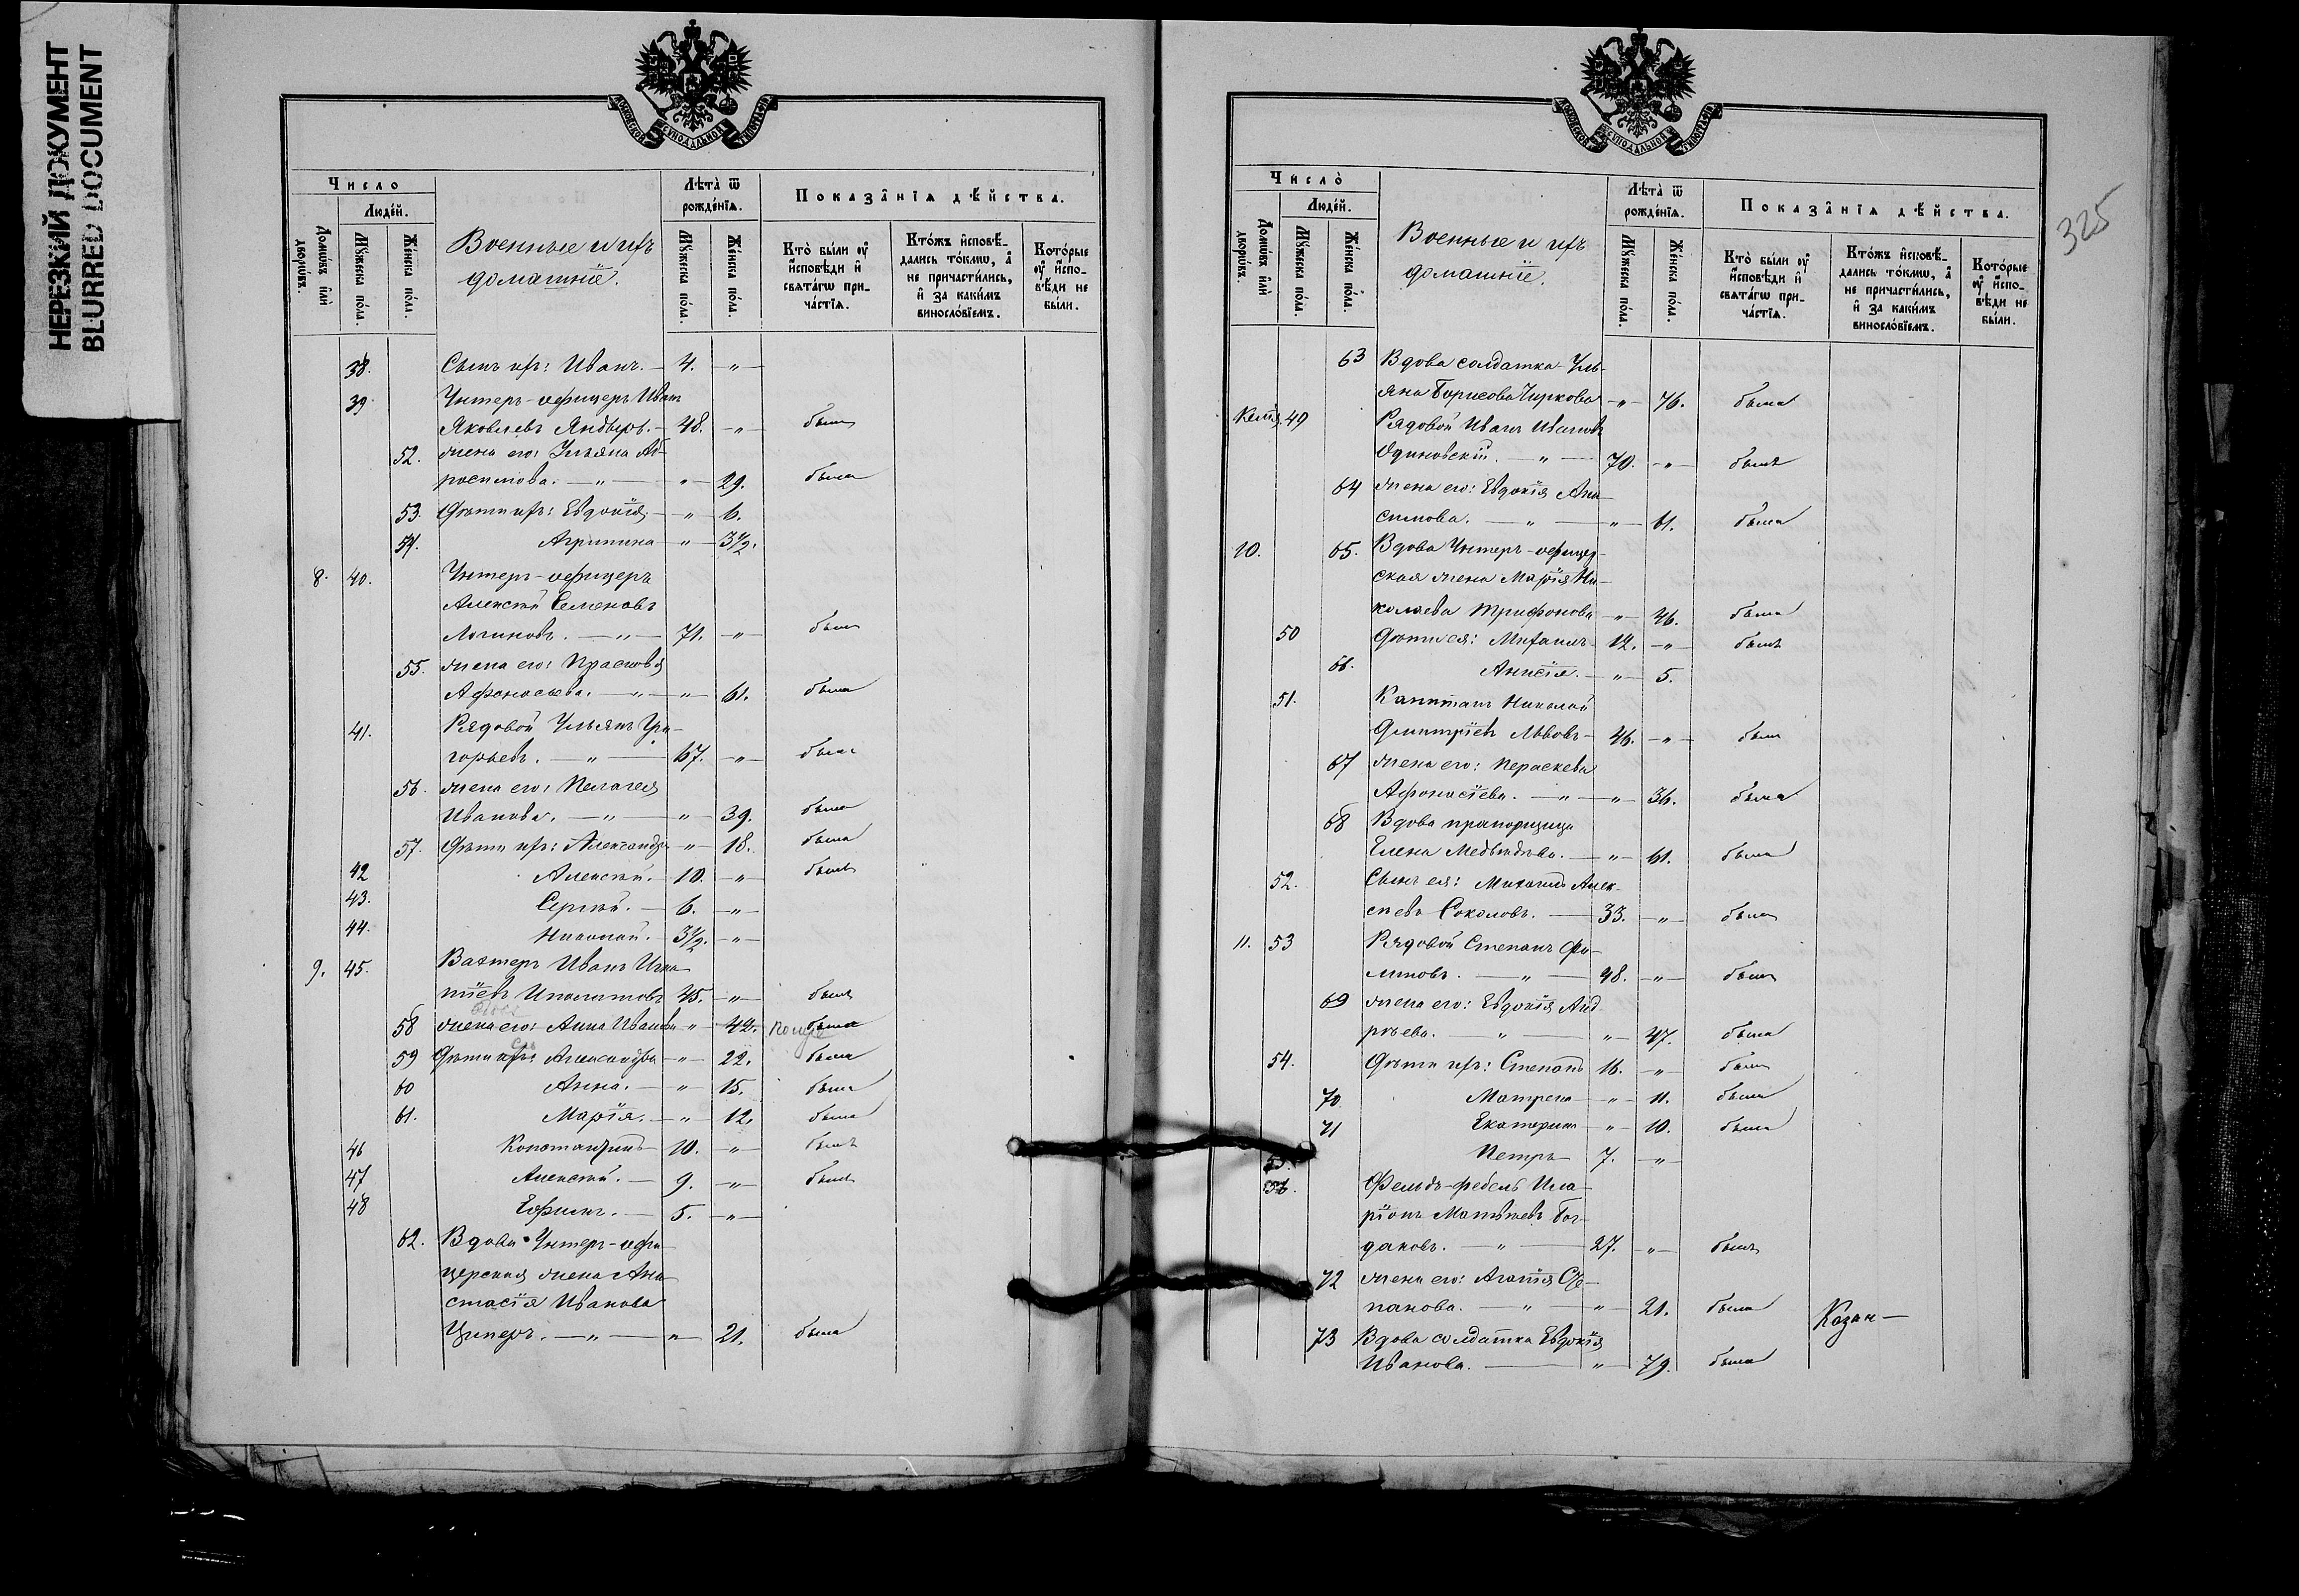 НЕРЕЗКИЙ ДОКУМЕНТ
BLURRED DOCUMENT
МОСКОВСКОЙ СѴНОДАЛЬНОЙ ТИПОГРАФІИ
Число
Людей.
Домѡвъ или дворѡвъ.
Мꙋжеска пола.
Женска пола.
Военные и ихъ
домашніе.
Лѣта ѿ
рожденія.
Мꙋжеска пола.
Женска пола.
Показанія дѣйства.
Кто были оу
исповѣди и
свѧтагѡ при-
частіѧ.
Ктожъ исповѣ-
дались токмѡ, а
не причастились,
и за какимъ
винословіемъ.
Которые
оу испо-
вѣди не
были.
38. Сынъ ихъ: Иванъ. — 4. — „ —
39. Унтеръ-офицеръ Иванъ
Яковлевъ — 48. — „ — былъ
52. жена его: Ульяна Аб-
росимова. — „ — „ — 29. была
53. Дѣти ихъ: Евдокія — „ — 6.
54. Агрипина — „ — 3½.
8. 40. Унтеръ-офицеръ
Алексѣй Семеновъ
Логиновъ. — „ — 71. — „ — былъ
55. жена его: Прасковья
Афонасьева. — „ — „ — 61. была
41. Рядовой Ульянъ Гри-
горьевъ. — „ — 67. — „ — былъ
56. жена его: Пелагея
Иванова. — „ — „ — 39. была
57. Дѣти ихъ: Александра — „ — 18. была
42 Алексѣй. — 10. — „ — былъ
43. Сергѣй. — 6. — „ —
44. Николай. — 3½. — „ —
9. 45. Вахтеръ Иванъ Игна-
тіевъ Ипалитовъ 45. — „ — былъ
58 жена его: Анна Иванова „ — 42. была
59 Дѣти ихъ: Александра — „ — 22. была
60 Анна. — „ — 15. была
61. Марія. — „ — 12. была
46 Константинъ — 10. — „ — былъ
47 Алексѣй. — 9. — „ — былъ
48 Ефимъ. — 5. — „ —
62. Вдова Унтеръ-офи-
церская жена Ана-
стасія Иванова
Циперъ. — „ — „ — 21. была
325
МОСКОВСКОЙ СѴНОДАЛЬНОЙ ТИПОГРАФІИ
Число
Людей.
Домѡвъ или дворѡвъ.
Мꙋжеска пола.
Женска пола.
Военные и ихъ
домашніе.
Лѣта ѿ
рожденія.
Мꙋжеска пола.
Женска пола.
Показанія дѣйства.
Кто были оу
исповѣди и
свѧтагѡ при-
частіѧ.
Ктожъ исповѣ-
дались токмѡ, а
не причастились,
и за какимъ
винословіемъ.
Которые
оу испо-
вѣди не
были.
63 Вдова солдатка Уль-
яна Борисова Чиркова — „ — 76. была
49 Рядовой Иванъ Ивановъ
Одиновскій. — „ — 70. — „ — былъ
64 жена его: Евдокія Ани-
симова. — „ — „ — 61. была
10. 65. Вдова Унтеръ-офицер-
ская жена Марія Ни-
колаева Трифонова — „ — 46. была
50 Дѣти ея: Михаилъ 12. — „ — былъ
66. Анисія. — „ — 5.
51. Капитанъ Николай
Димитріевъ Львовъ — 46. — „ — былъ
67 жена его: Параскева
Афонасіева. — „ — „ — 36. была
68 Вдова прапорщица
Елена Медвѣдева. — „ — 61. была
52. Сынъ ея: Михаилъ Алек-
сѣевъ Соколовъ. — 33. — „ — былъ
11. 53 Рядовой Степанъ Фи-
липовъ. — „ — 48. — „ — былъ
69 жена его: Евдокія Анд-
рѣева. — „ — „ — 47. была
54. Дѣти ихъ: Степанъ 16. — „ — былъ
70 Матрена — „ — 11. была
71 Екатерина — „ — 10. была
55. Петръ — 7. — „ —
56. Фельдъ-фебель Ила-
ріонъ Матвѣевъ Бог-
дановъ. — „ — 27. — „ — былъ
72 жена его: Агапія Сте-
панова. — „ — „ — 21. была
Казан—
73 Вдова солдатка Евдокія
Иванова. — „ — 79. была